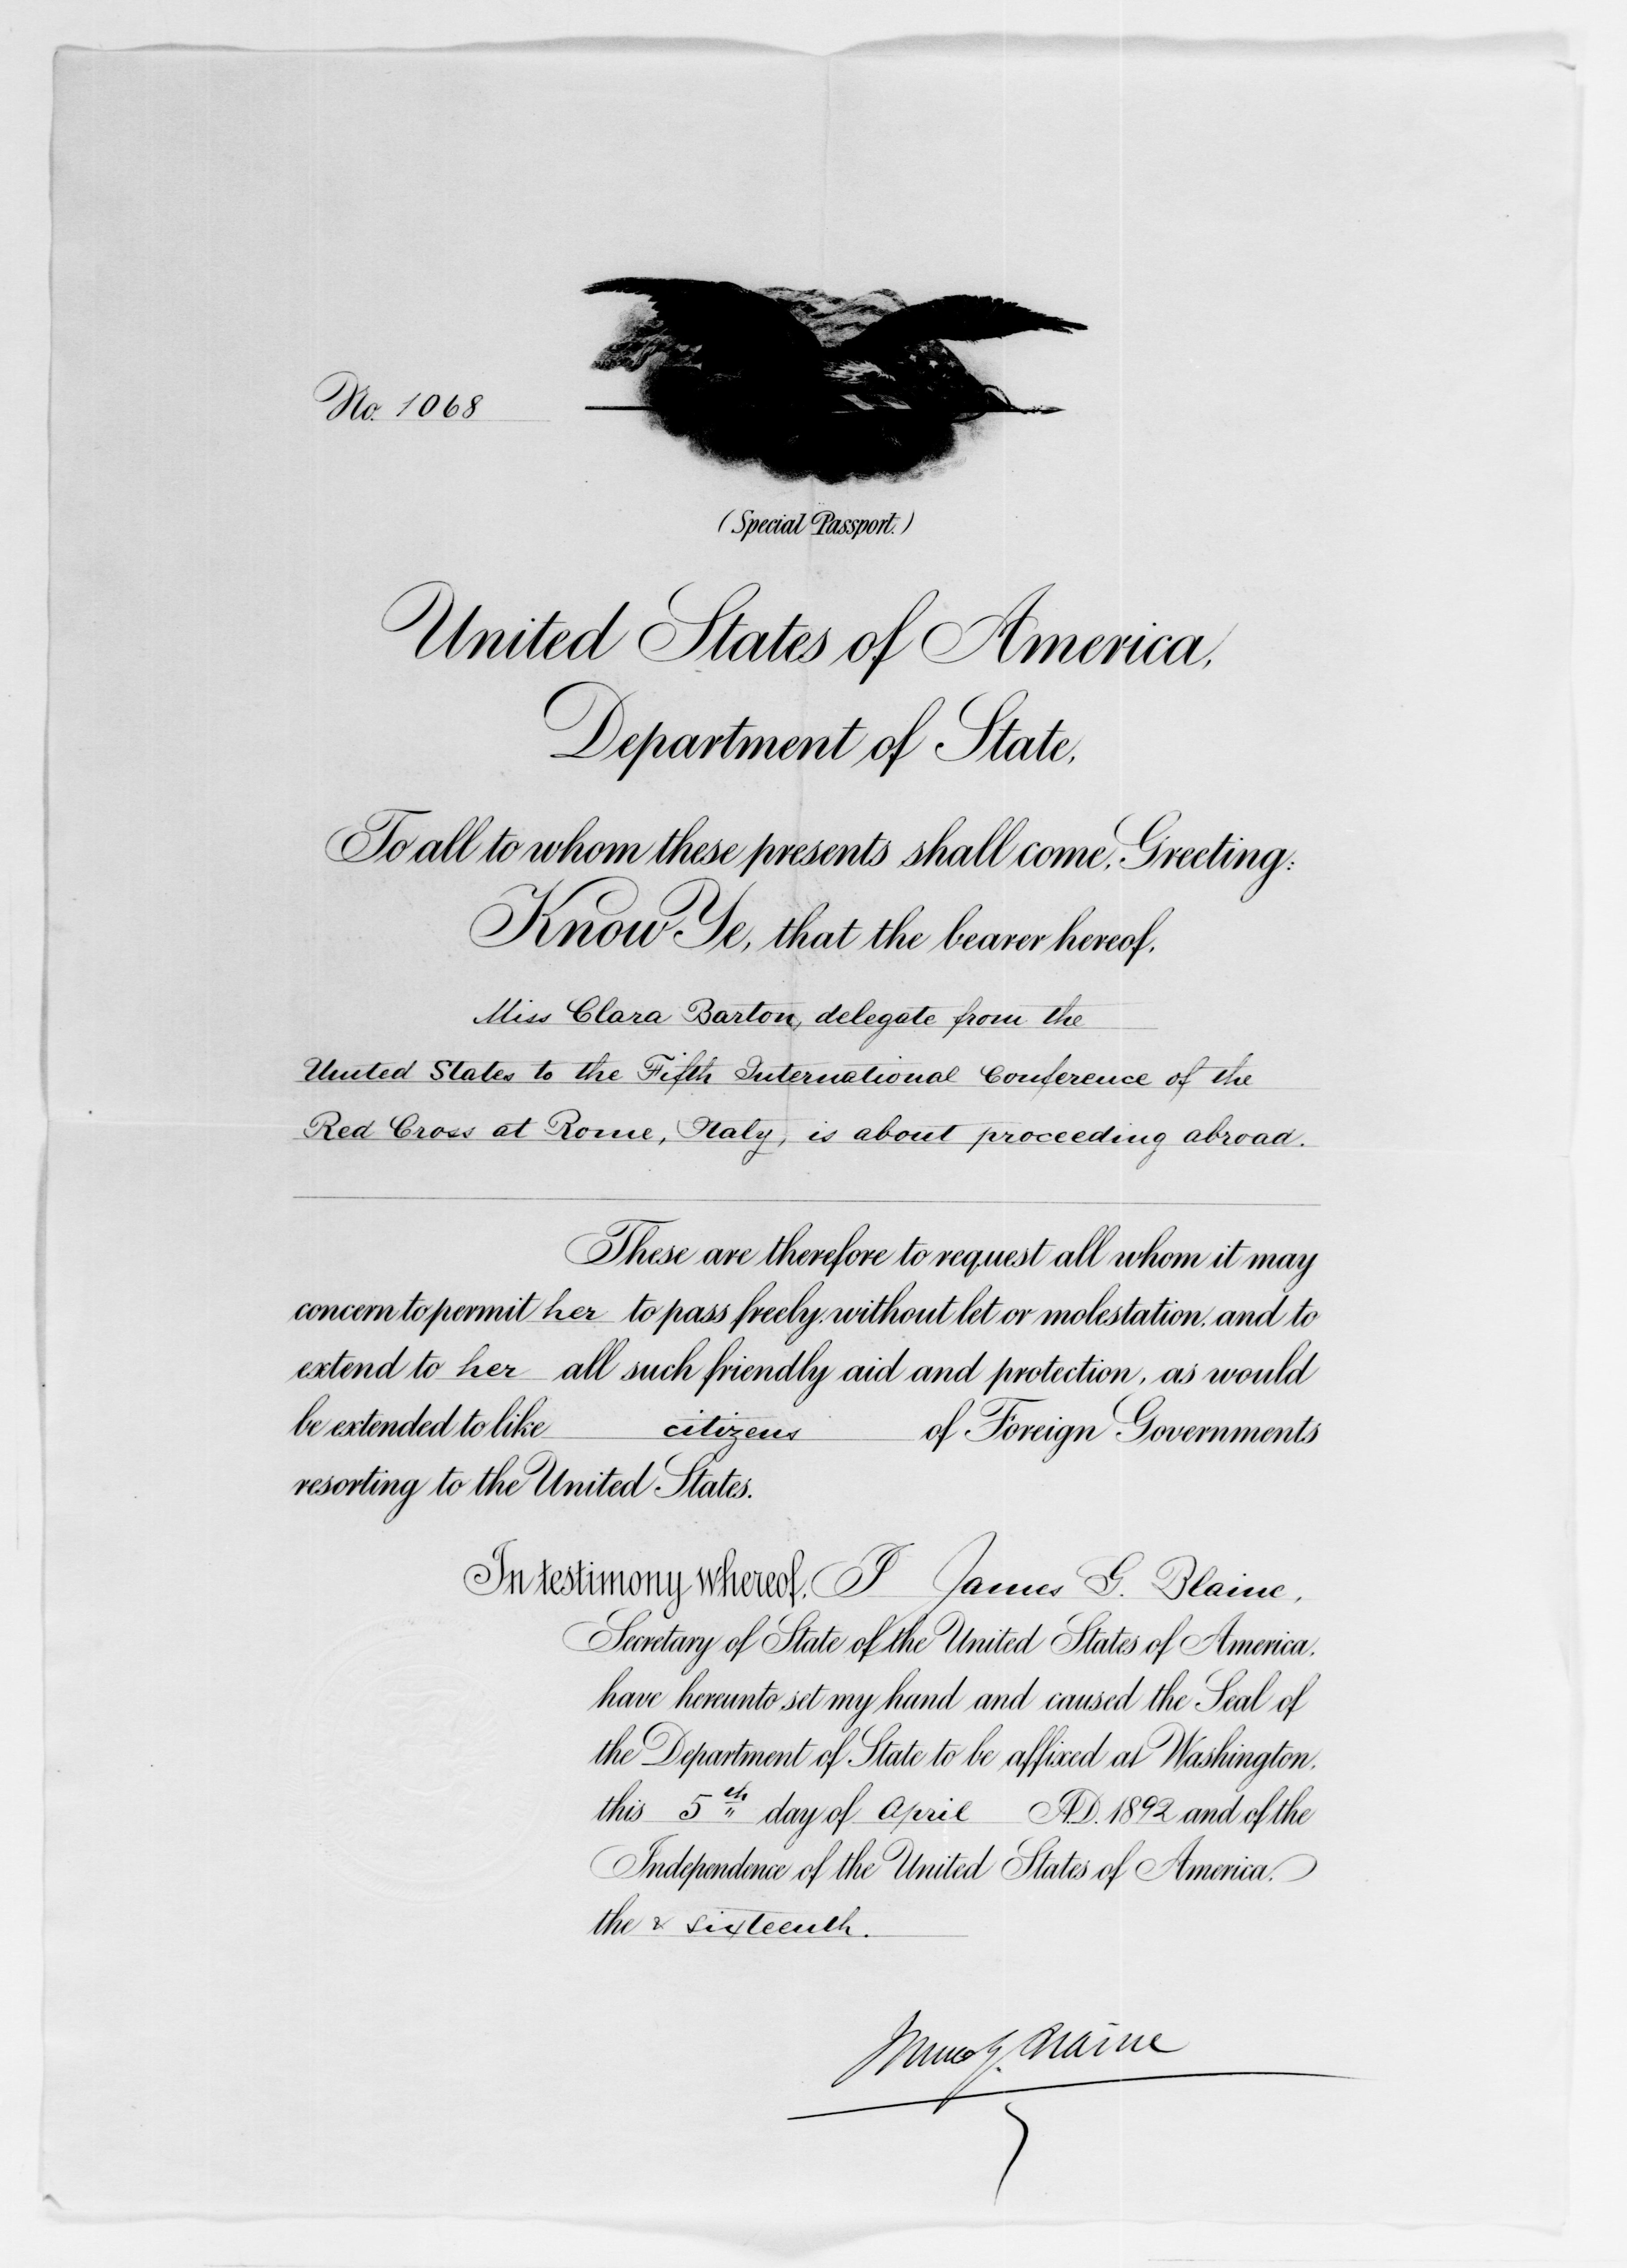 No. 1068
(Special Passport.)
United States of America,
Department of State,
To all to whom these presents shall come, Greeting:
Know Ye, that the bearer hereof,
Miss Clara Barton, delegate from the
United States to the Fifth International Conference of the
Red Cross at Rome, Italy, is about proceeding abroad.
These are therefore to request all whom it may
concern to permit her to pass freely, without let or molestation, and to
extend to her all such friendly aid and protection, as would
be extended to like citizens of Foreign Governments
resorting to the United States.
In testimony whereof, I James G. Blaine,
Secretary of State of the United States of America,
have hereunto set my hand and caused the Seal of
the Department of State to be affixed at Washington,
this 5th day of April A.D. 1892 and of the
Independence of the United States of America,
the & sixteenth.
James G. Blaine